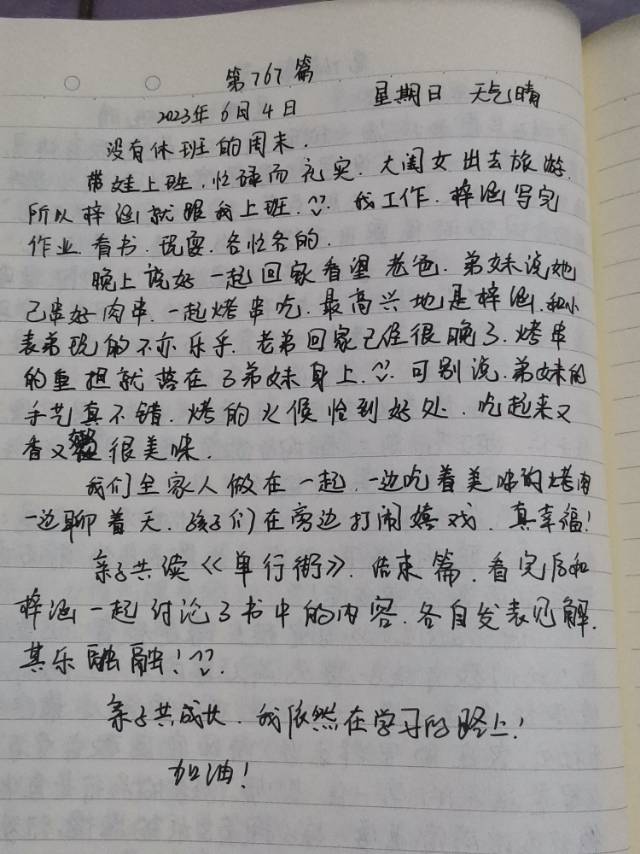 第767篇
2023年6月4日 星期日 天气晴
没有休班的周末.
带娃上班,忙碌而充实.大闺女出去旅游,
所以梓涵就跟我上班.^_^.我工作.梓涵写完
作业.看书.玩耍.各忙各的.
晚上说好一起回家看望老爸.弟妹说她
己串好肉串.一起烤串吃.最高兴地是梓涵.和小
表弟玩的不亦乐乎.老弟回家己经很晚了.烤串
的重担就落在了弟妹身上.^_^.可别说.弟妹的
手艺真不错.烤的火候恰到好处.吃起来又
香又 很美味.
我们全家人做在一起,一边吃着美味的烤肉
一边聊着天.孩子们在旁边打闹嬉戏.真幸福!
亲子共读《单行街》.结束篇.看完后和
梓涵一起讨论了书中的内容.各自发表见解.
其乐融融!^_^.
亲子共成长.我依然在学习的路上!
加油!